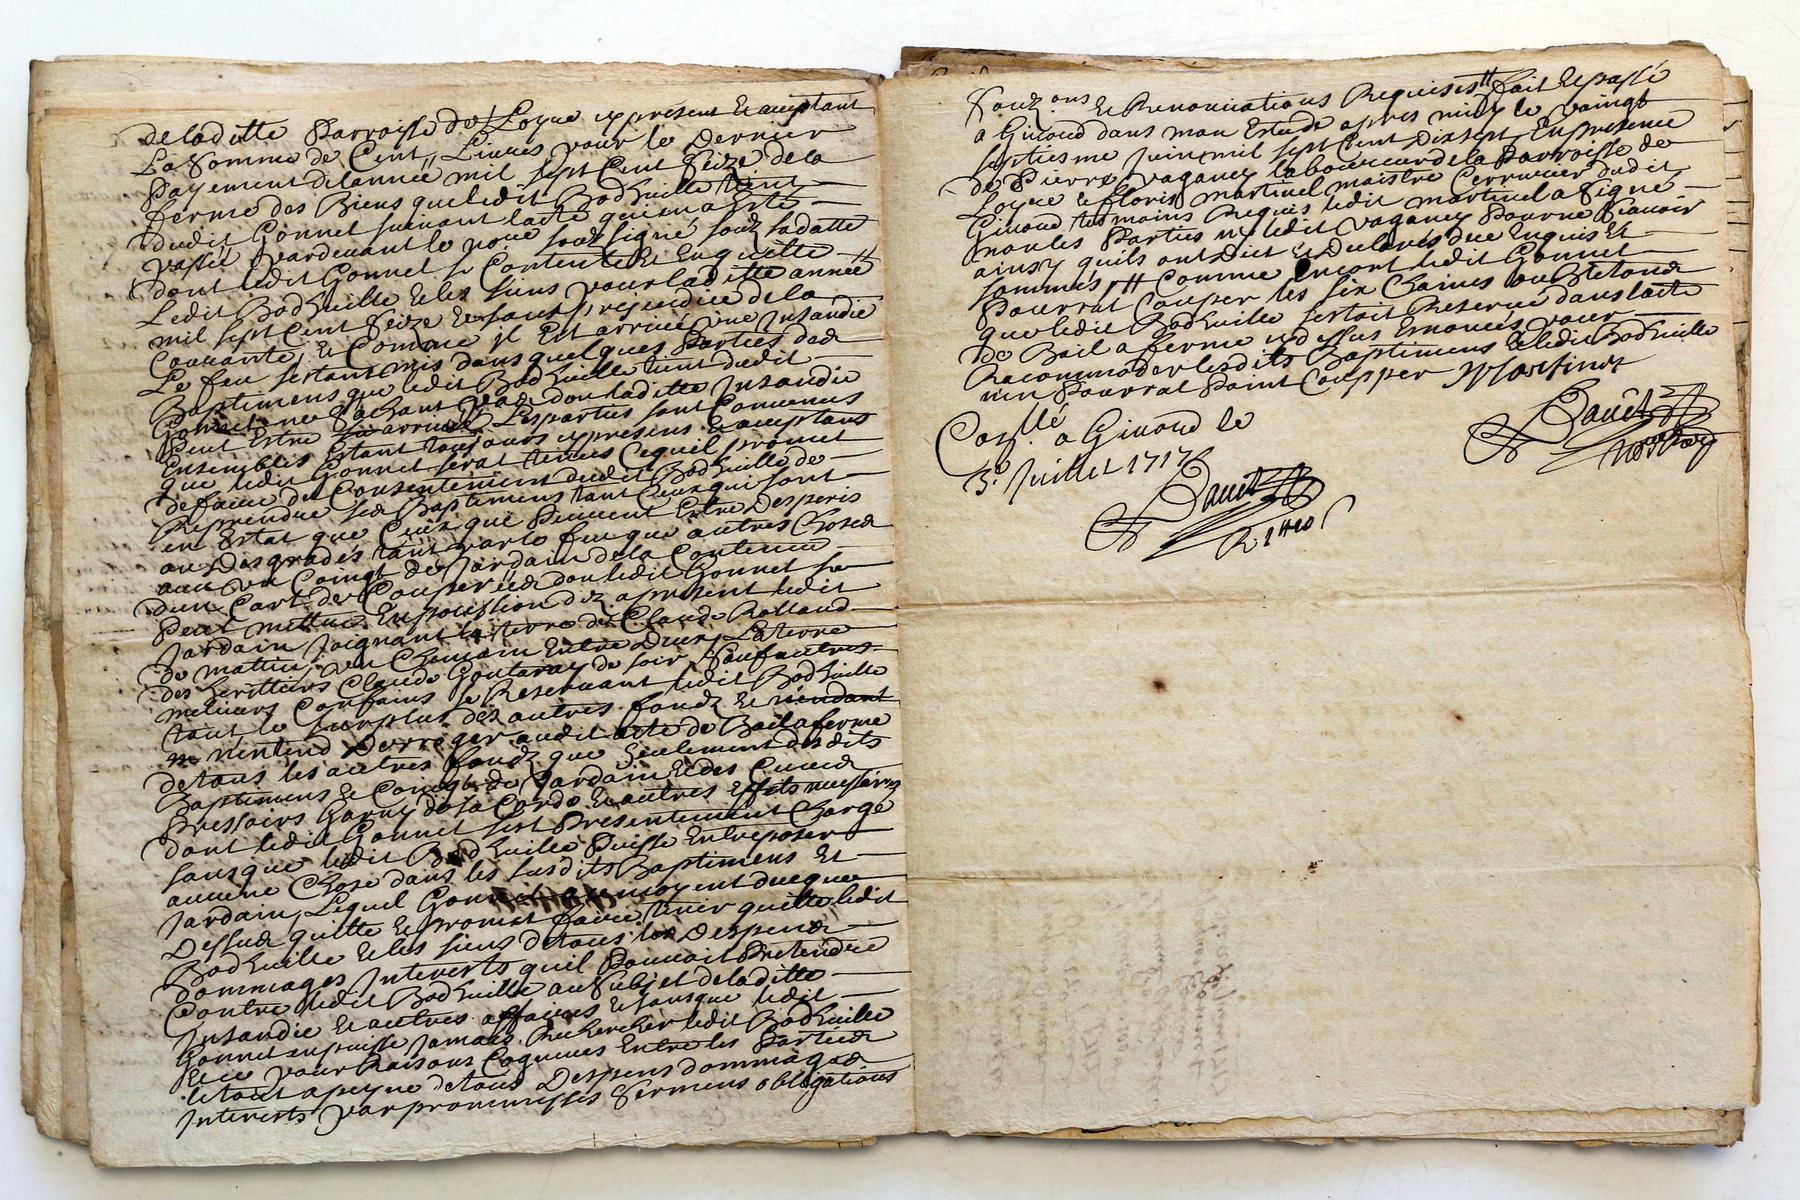 de laditte Parroisse de Loyue ypresent Et aceptant
La Somme de Cent Liures pour le Dernier
Payement de lannée mil sept Cent Seize de la
ferme des Biens que ledit Bodhuille tient
dudit Gonnet suiuant lacte qui en a Esté
passé pardeuant le no.re souz signé souz sa datte
dont ledit Gonnet se Contente Et En quitte
Ledit Bodhuille Et les siens pour laditte année
mil sept Cent Seize Et sans prejudice de la
Courante, Et Comme jl Est arriué vne Jnsandie
Le feu sestant mis dans quelques Parties des
Baptimens que ledit Bodhuille tient dudit
Gonnet ne sachant pas dou laditte Jnsandie
Peut Estre Les parties sont Conuenus
Ensembles Estant tousjours ypresens Et aceptans
que ledit Gonnet serat tenus Ce quil promet
de faire du Consentement dudit Bodhuille de
Reprendre ses Baptimens tant Ceux qui sont
en Estat que Ceux qui Peuuent Estre Desperis
ou Desgradés tant par le feu que autres Choses
aux vn Coingt de Jardain de la Contenue
dun Cart de Couperée dou ledit Gonnet se
Peut mettre En possession dez apresent ledit
Jardain Joignant la terre de Claude Rolland
de mattin, vn Chemain Entre Deux, La terre
des heritiers Claude Goutaray de soir, Sauf autres
meilieurs Confains se Reseruant ledit Bodhuille
tout le surplus des autres fondz Et
nentend Derroger audit acte de Bail a ferme
de tous les autres fondz que Seulement desdits
Baptimens Et Coingt de Jardain Et des Cuues
Pressoirs Garny de sa Corde Et autres Effets nessesaires
dont ledit Gonnet sest Presentement Chargé
sans que ledit Bodhuille Puisse Entreposer
aucune Chose dans les susdits Baptimens Et
Jardain, Lequel Gonnet au moyent du que
Dessus quitte Et promet faire tenir quitte ledit
Bodhuille Et les siens de tous les Despens
dommages Jnterests quil Pouuoit Pretendre
Contre ledit Bodhuille au Subjet de laditte
Jnsandie Et autres affaires Et sans que ledit
Gonnet en puisse Jamais Rechercher ledit Bodhuille
Et ce pour Raisons Cogneues Entre les Parties
le tout a peyne de tous Despens dommages
Jnterests par prommesses Sermens obligations
Souz.ons Et Renonciations Requises fait Et passé
a Giuord dans mon Estude apres midy le vaingt
septiesme Juin mil sept Cent Dixsept En presence
de Pierre Vaganey laboureur de la Parroisse de
Loyue Et floris martinel maistre Cerrurier dudit
Giuord tesmoins Requis ledit martinel a Signé
non les Parties ny ledit Vaganey Pour ne Scauoir
ainsy quils ont Dict Et Declarés Due Enquis Et
sommés Comme Encont ledit Gonnet
Pourrat Couper les six Chaines ou Bletons
que ledit Bodhuille sestoit Reserué dans lacte
de Bail a ferme cydessus Enoncés pour
Racommoder lesdits Baptimens Et ledit Bodhuille
nen Pourrat Point Coupper Martinel
Con.llé a Giuord le
3.e Juillet 1717